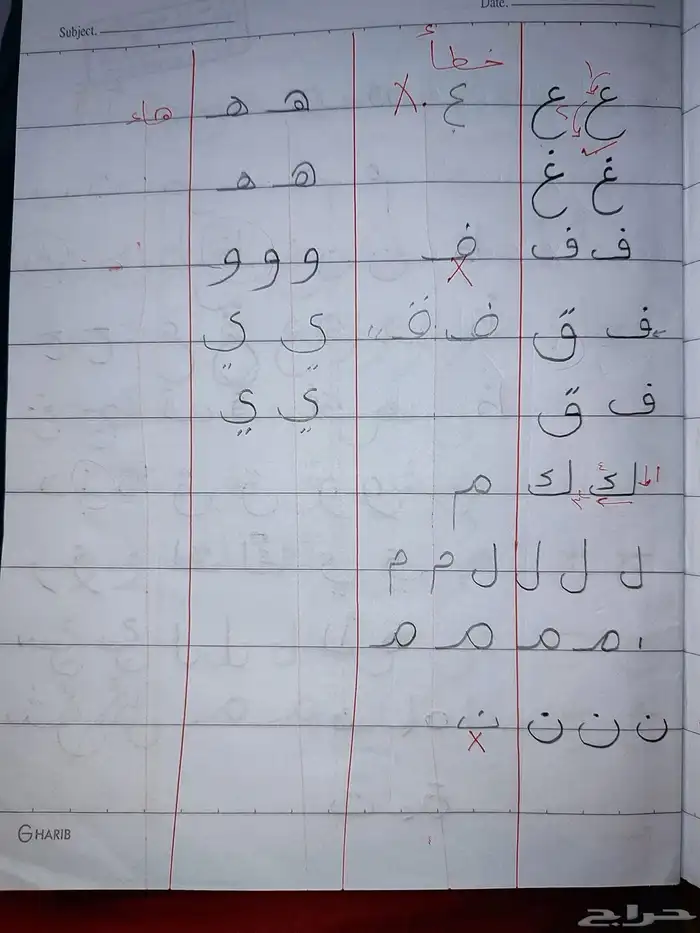 Subject. Date.
خطأ
١ ع ع ٢ ع X ه ه هاء
غ غ ه ه
ف ف ف X و و و
ف ق ف ق ي ي
ف ق ي ي
ا ك ٢ ك م
ل ل ل ل م م
م م م م
ن ن ن ن X
GHARIB
حراج